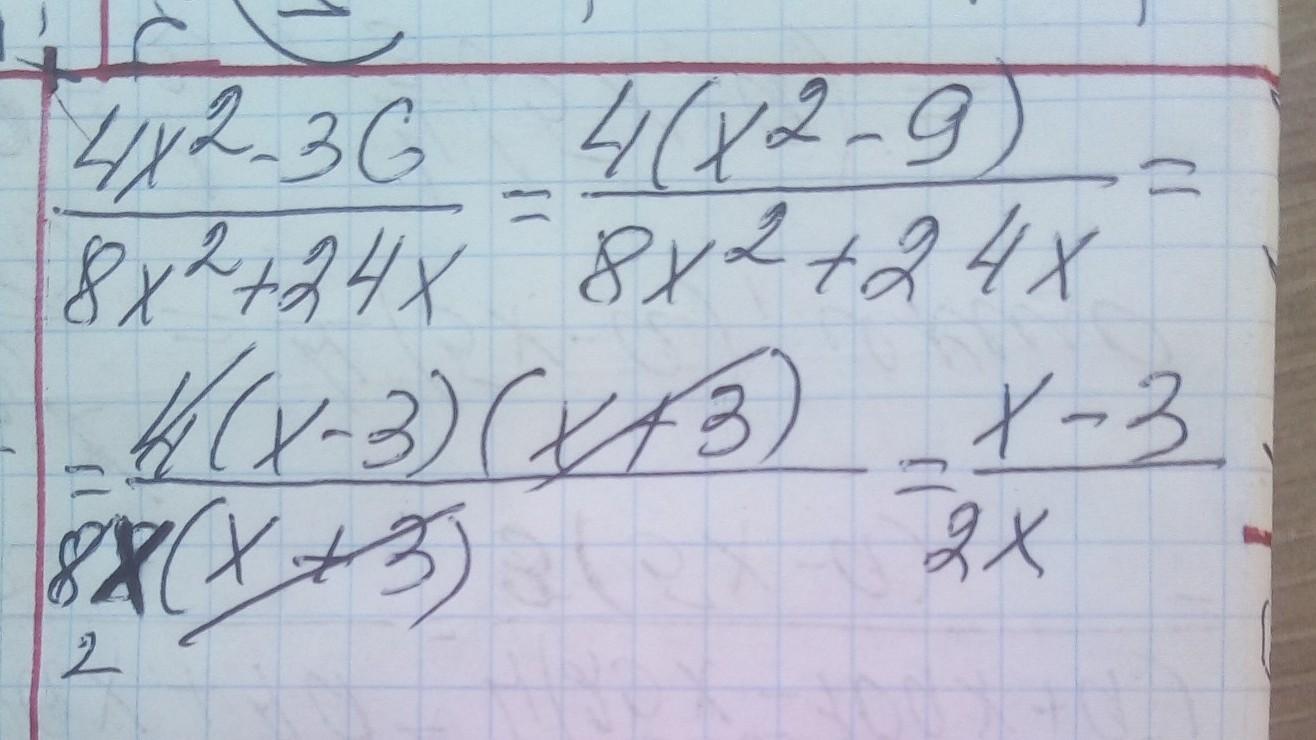 4x²-36 / 8x²+24x = 4(x²-9) / 8x²+24x =
= 4(x-3)(x+3) / 8x(x+3) = x-3 / 2x
2